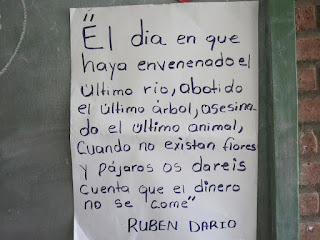 "El dia en que
haya envenenado el
último rio, abatido
el último árbol, asesina-
do el ultimo animal,
Cuando no existan flores
y pájaros os dareis
cuenta que el dinero
no se come"
RUBEN DARIO